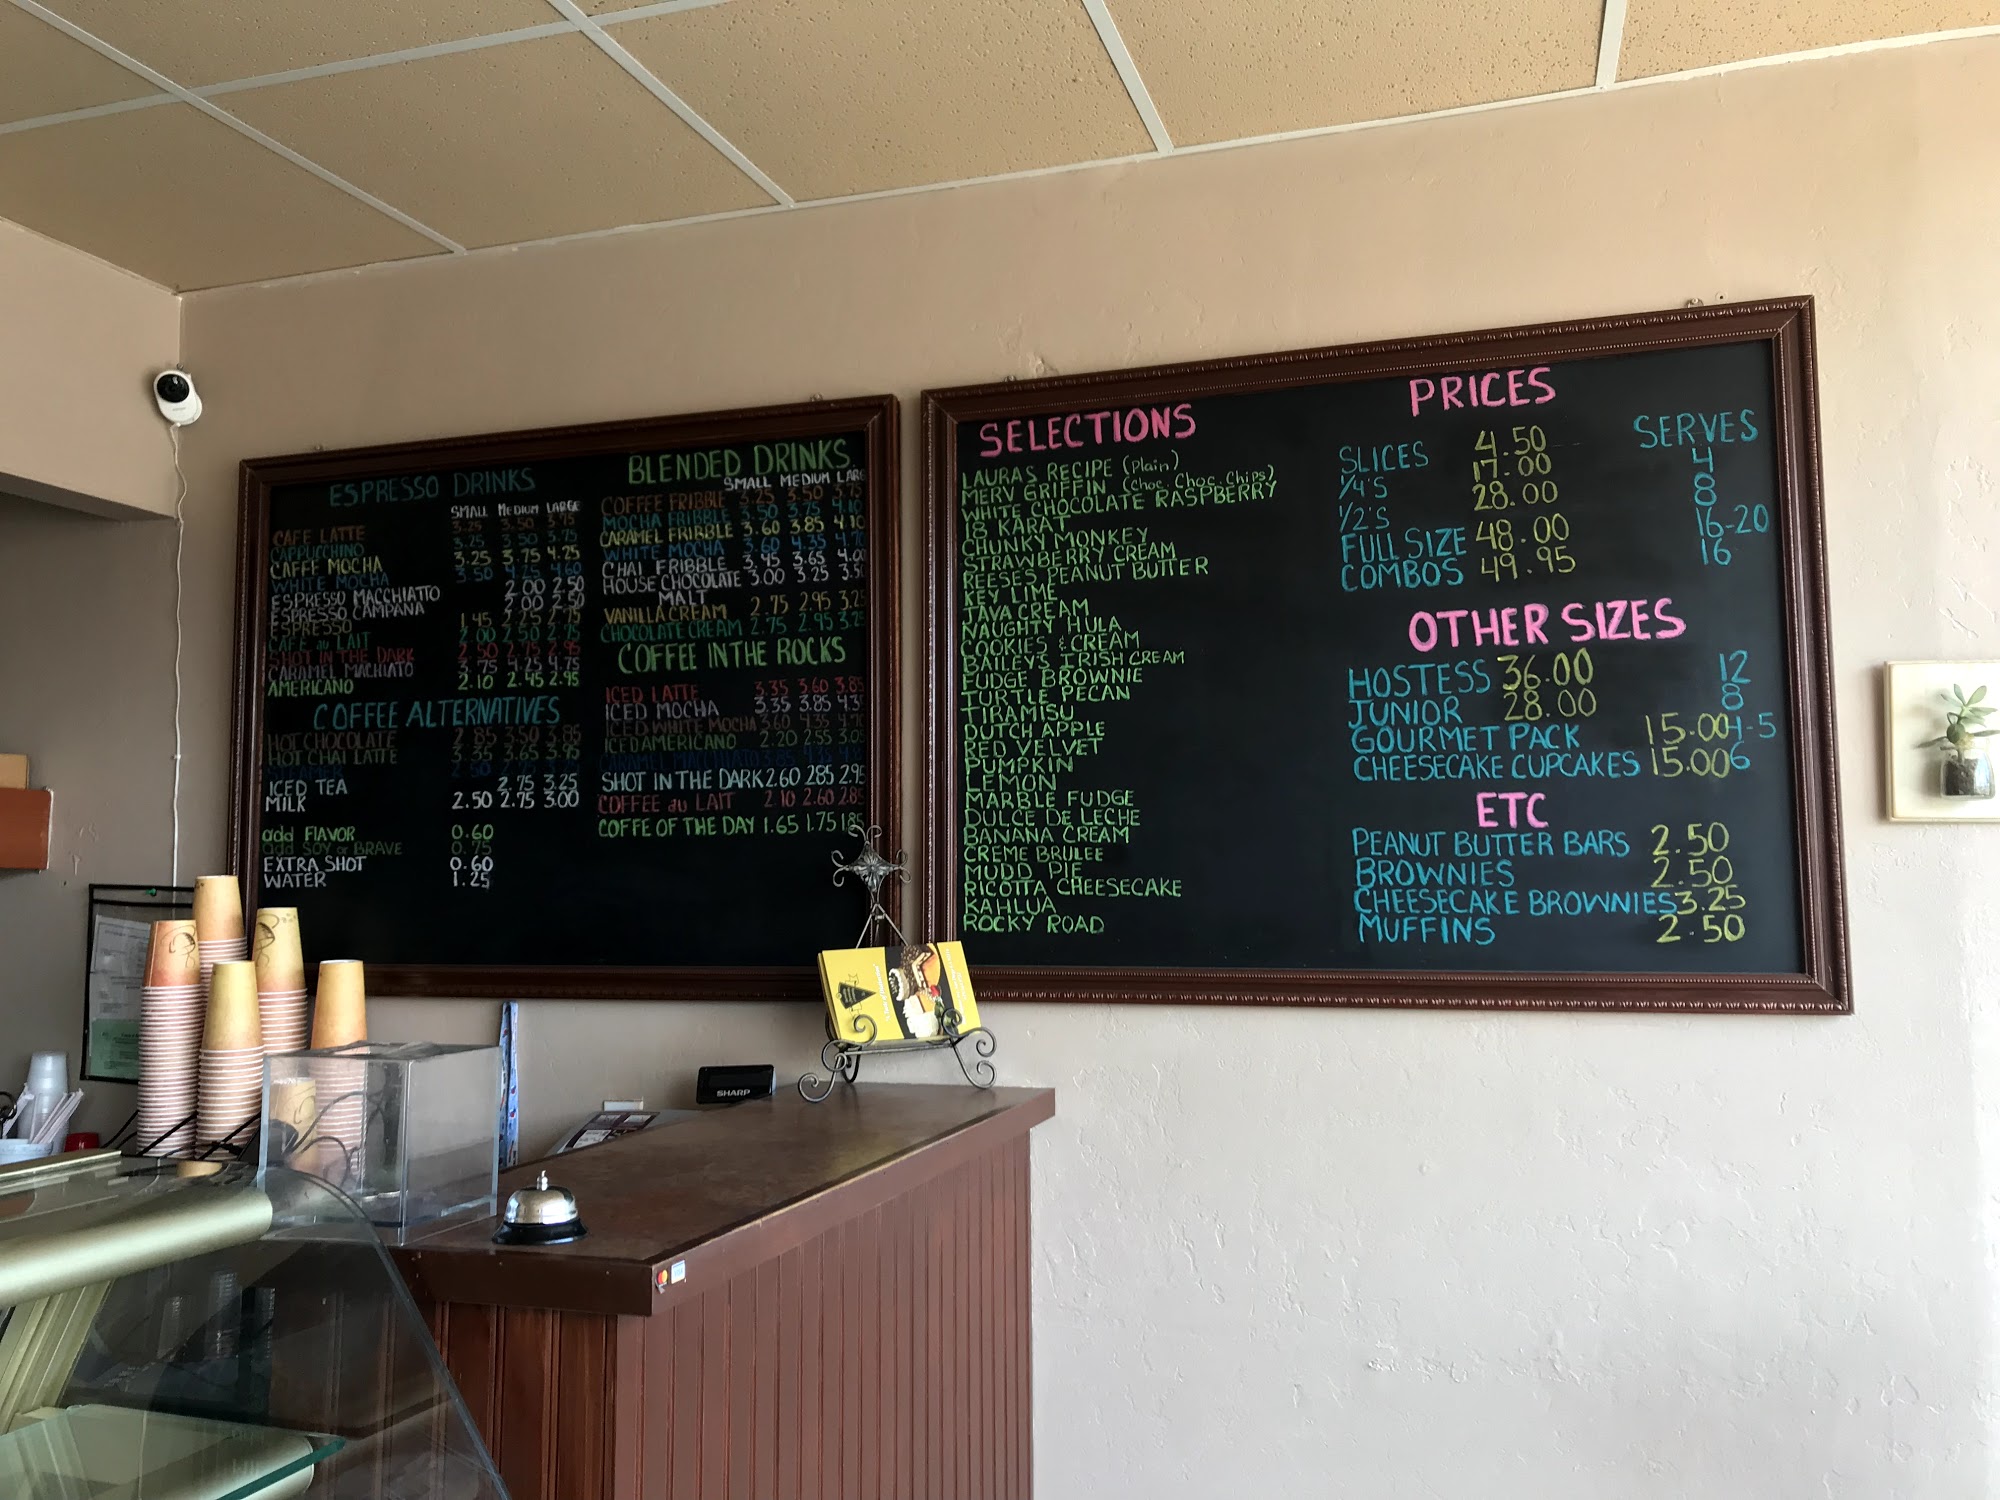 ESPRESSO DRINKS
SMALL MEDIUM LARGE
CAFE LATTE 3.25 3.50 3.75
CAPPUCCINO 3.25 3.50 3.75
CAFFE MOCHA 3.25 3.75 4.25
WHITE MOCHA 3.50 4.25 4.60
ESPRESSO MACCHIATTO 2.00 2.50
ESPRESSO CAMPANA 2.00 2.50
ESPRESSO 1.45 2.25 2.75
CAFE au LAIT 2.00 2.50 2.75
SHOT IN THE DARK 2.50 2.75 2.95
CARAMEL MACHIATO 3.75 4.25 4.75
AMERICANO 2.10 2.45 2.95
COFFEE ALTERNATIVES
HOT CHOCOLATE 2.85 3.50 3.85
HOT CHAI LATTE 3.35 3.65 3.95
ICED TEA 2.75 3.25
MILK 2.50 2.75 3.00
add FLAVOR 0.60
add SOY or BRAVE 0.75
EXTRA SHOT 0.60
WATER 1.25
BLENDED DRINKS
SMALL MEDIUM LARG
COFFEE FRIBBLE 3.25 3.50 3.75
MOCHA FRIBBLE 3.50 3.75 4.10
CARAMEL FRIBBLE 3.60 3.85 4.10
WHITE MOCHA 3.60 4.35 4.70
CHAI FRIBBLE 3.45 3.65 4.00
HOUSE CHOCOLATE 3.00 3.25 3.50
MALT
VANILLA CREAM 2.75 2.95 3.25
CHOCOLATE CREAM 2.75 2.95 3.25
COFFEE IN THE ROCKS
ICED LATTE 3.35 3.60 3.85
ICED MOCHA 3.35 3.85 4.35
ICED WHITE MOCHA 3.60 4.35 4.70
ICED AMERICANO 2.20 2.55 3.05
CARAMEL MACCHIATO 3.85
SHOT IN THE DARK 2.60 2.85 2.95
COFFEE au LAIT 2.10 2.60 2.85
COFFE OF THE DAY 1.65 1.75 1.85
SELECTIONS
LAURAS RECIPE (Plain)
MERV GRIFFIN (Choc. Choc. Chips)
WHITE CHOCOLATE RASPBERRY
18 KARAT
CHUNKY MONKEY
STRAWBERRY CREAM
REESES PEANUT BUTTER
KEY LIME
JAVA CREAM
NAUGHTY HULA
COOKIES & CREAM
BAILEY'S IRISH CREAM
FUDGE BROWNIE
TURTLE PECAN
TIRAMISU
DUTCH APPLE
RED VELVET
PUMPKIN
LEMON
MARBLE FUDGE
DULCE DE LECHE
BANANA CREAM
CREME BRULEE
MUDD PIE
RICOTTA CHEESECAKE
KAHLUA
ROCKY ROAD
PRICES
SERVES
SLICES 4.50
1/4'S 17.00 4
1/2'S 28.00 8
FULL SIZE 48.00 16-20
COMBOS 49.95 16
OTHER SIZES
HOSTESS 36.00 12
JUNIOR 28.00 8
GOURMET PACK 15.00 4-5
CHEESECAKE CUPCAKES 15.00 6
ETC
PEANUT BUTTER BARS 2.50
BROWNIES 2.50
CHEESECAKE BROWNIES 3.25
MUFFINS 2.50
SHARP